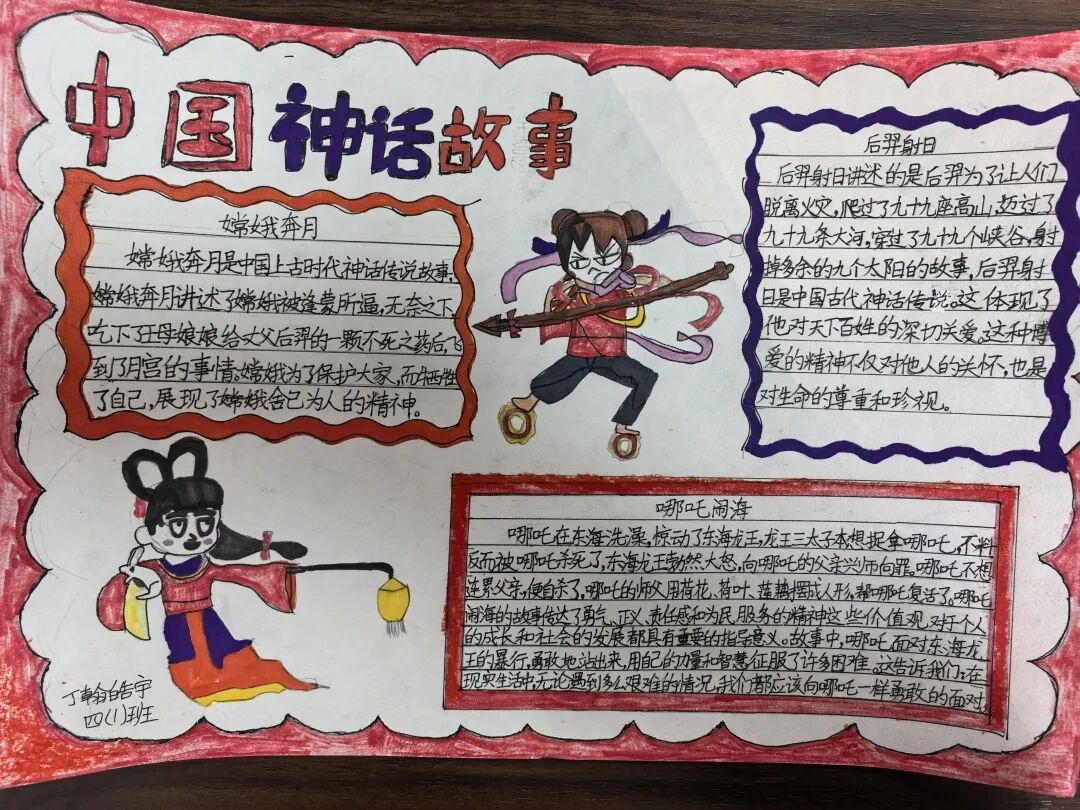 中国神话故事
嫦娥奔月
嫦娥奔月是中国上古时代神话传说故事,
嫦娥奔月讲述了嫦娥被逢蒙所逼,无奈之下
吃下了王母娘娘给丈夫后羿的一颗不死之药后,飞
到了月宫的事情。嫦娥为了保护大家,而牺牲
了自己,展现了嫦娥舍己为人的精神。
后羿射日
后羿射日讲述的是后羿为了让人们
脱离火灾,爬过了九十九座高山,迈过了
九十九条大河,穿过了九十九个峡谷,射
掉多余的九个太阳的故事,后羿射
日是中国古代神话传说。这体现了
他对天下百姓的深切关爱。这种博
爱的精神不仅对他人的关怀,也是
对生命的尊重和珍视。
哪吒闹海
哪吒在东海洗澡,惊动了东海龙王,龙王三太子本想捉拿哪吒,不料
反而被哪吒杀死了,东海龙王勃然大怒,向哪吒的父亲兴师问罪。哪吒不想
连累父亲,便自杀了,哪吒的师父用荷花、荷叶、莲藕摆成人形,帮哪吒复活了。哪吒
闹海的故事传达了勇气、正义、责任感和为民服务的精神这些价值观,对于个人
的成长和社会的发展都具有重要的指导意义。故事中,哪吒面对东海龙
王的暴行,勇敢地站出来,用自己的力量和智慧征服了许多困难。这告诉我们:在
现实生活中,无论遇到多么艰难的情况,我们都应该向哪吒一样勇敢的面对。
丁翰皓宇
四(1)班